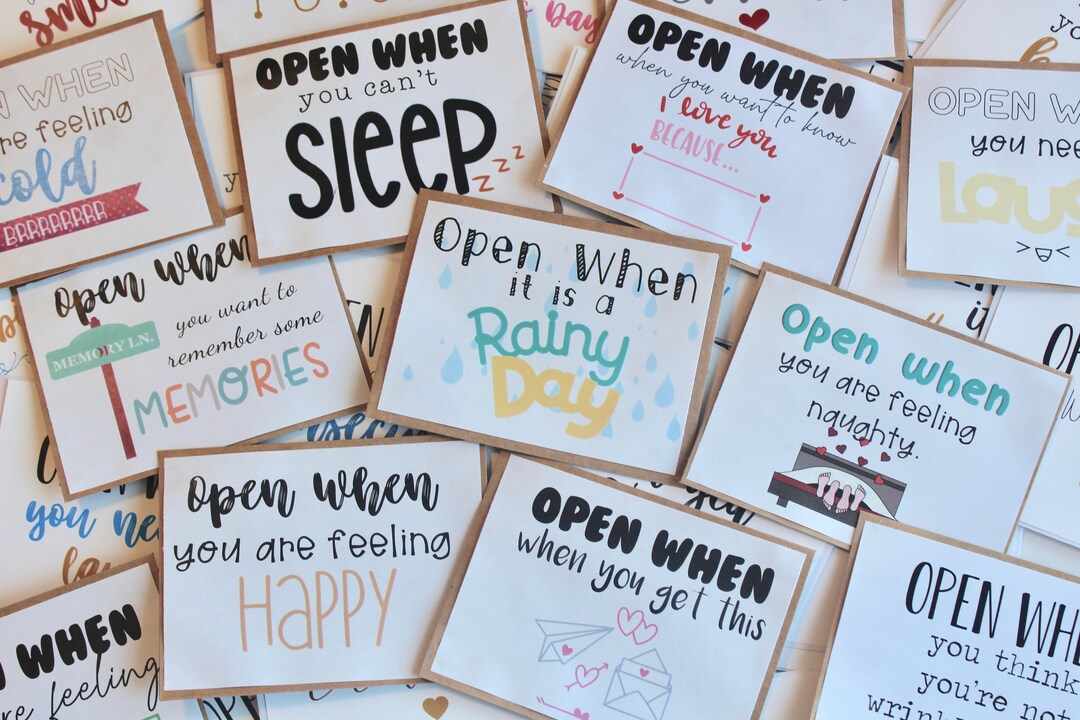 smile
day
N WHEN
re feeling
cold
BRRRRRRR
OPEN WHEN
you can't
SLEEP
z z z
OPEN WHEN
when you want to know
I love you
BECAUSE...
OPEN W
you nee
Laug
open when
MEMORY LN.
you want to
remember some
MEMORIES
Open When
it is a
Rainy
Day
Open when
you are feeling
naughty.
you ne
la
open when
you are feeling
HAPPY
OPEN WHEN
when you get this
N WHEN
e feeling
OPEN WHE
you think
you're not
wrink